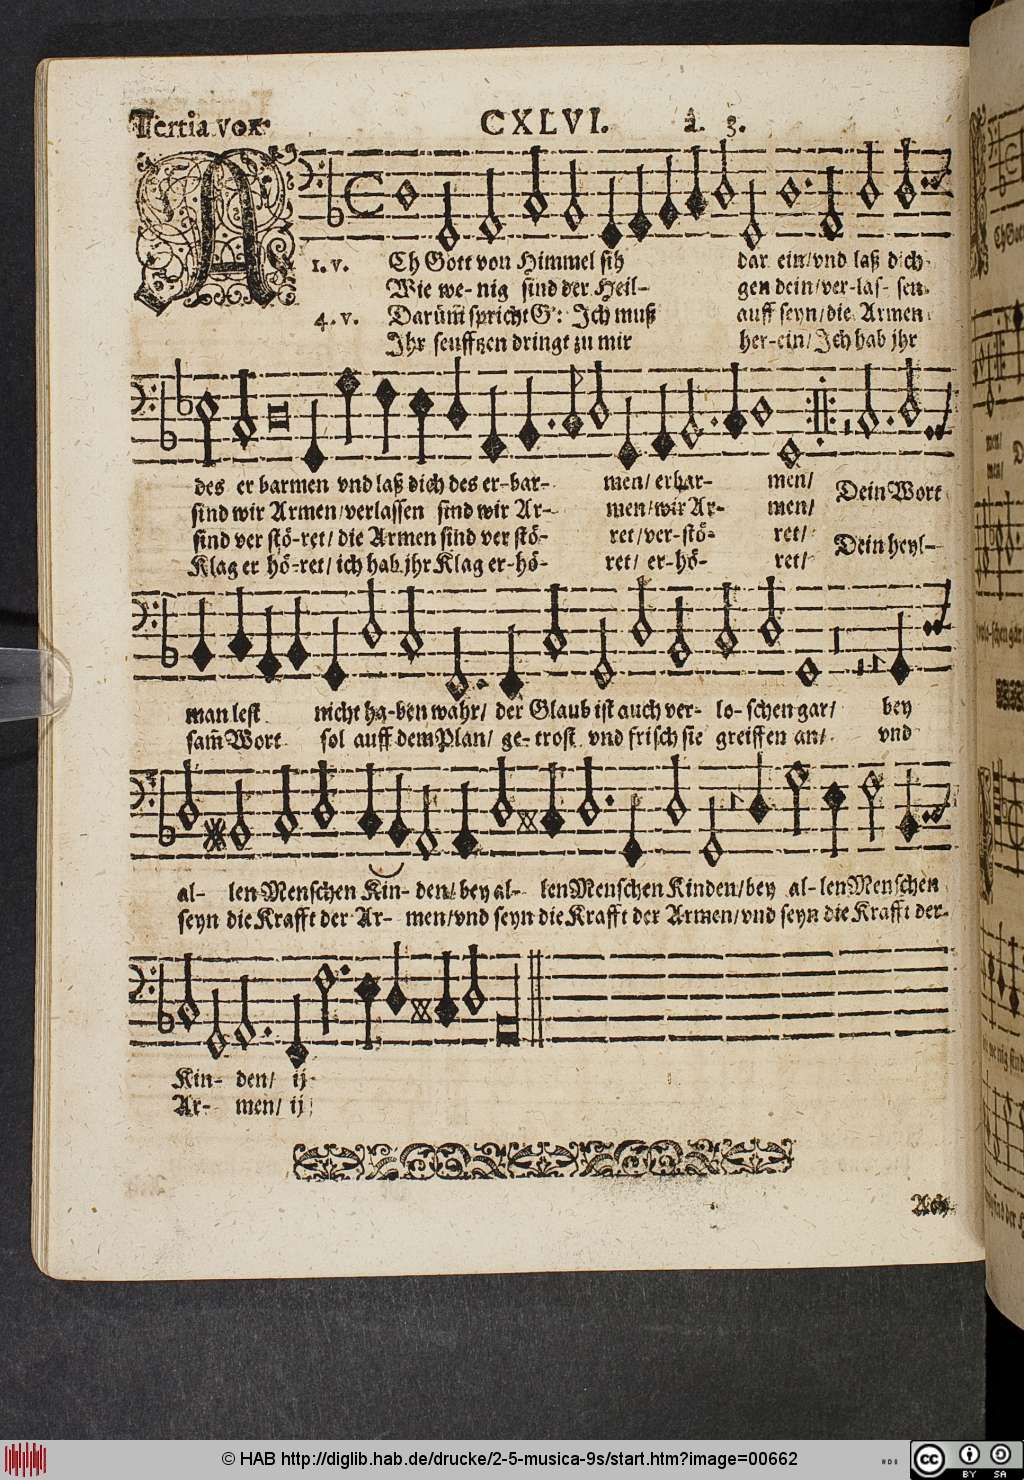 Tertia vox. CXLVI. à. 3.
A
1. v. Ch Gott von Himmel sih dar ein/vnd laß dich
Wie we- nig sind der Heil- gen dein/ver-las- sen
4. v. Darüm̃ spricht G': Ich muß auff seyn/die Armen
Ihr seufftzen dringt zu mir her-ein/Ich hab jhr
des er barmen vnd laß dich des er-bar- men/ erbar- men/ Dein Wort
sind wir Armen/verlassen sind wir Ar- men/wir Ar- men/
sind ver stö-ret/ die Armen sind ver stö- ret/ver-stö- ret/ Dein heyl-
Klag er hö-ret/ ich hab jhr Klag er-hö- ret/ er-hö- ret/
man lest nicht ha-ben wahr/ der Glaub ist auch ver- lo- schen gar/ bey
sam̃ Wort sol auff dem Plan/ ge- trost vnd frisch sie greiffen an/ vnd
al- len Menschen Kin- den/bey al- len Menschen Kinden/bey al-len Menschen
seyn die Krafft der Ar- men/vnd seyn die Krafft der Armen/vnd seyn die Krafft der-
Kin- den/ ij
Ar- men/ ij
Ach
© HAB http://diglib.hab.de/drucke/2-5-musica-9s/start.htm?image=00662
cc BY SA